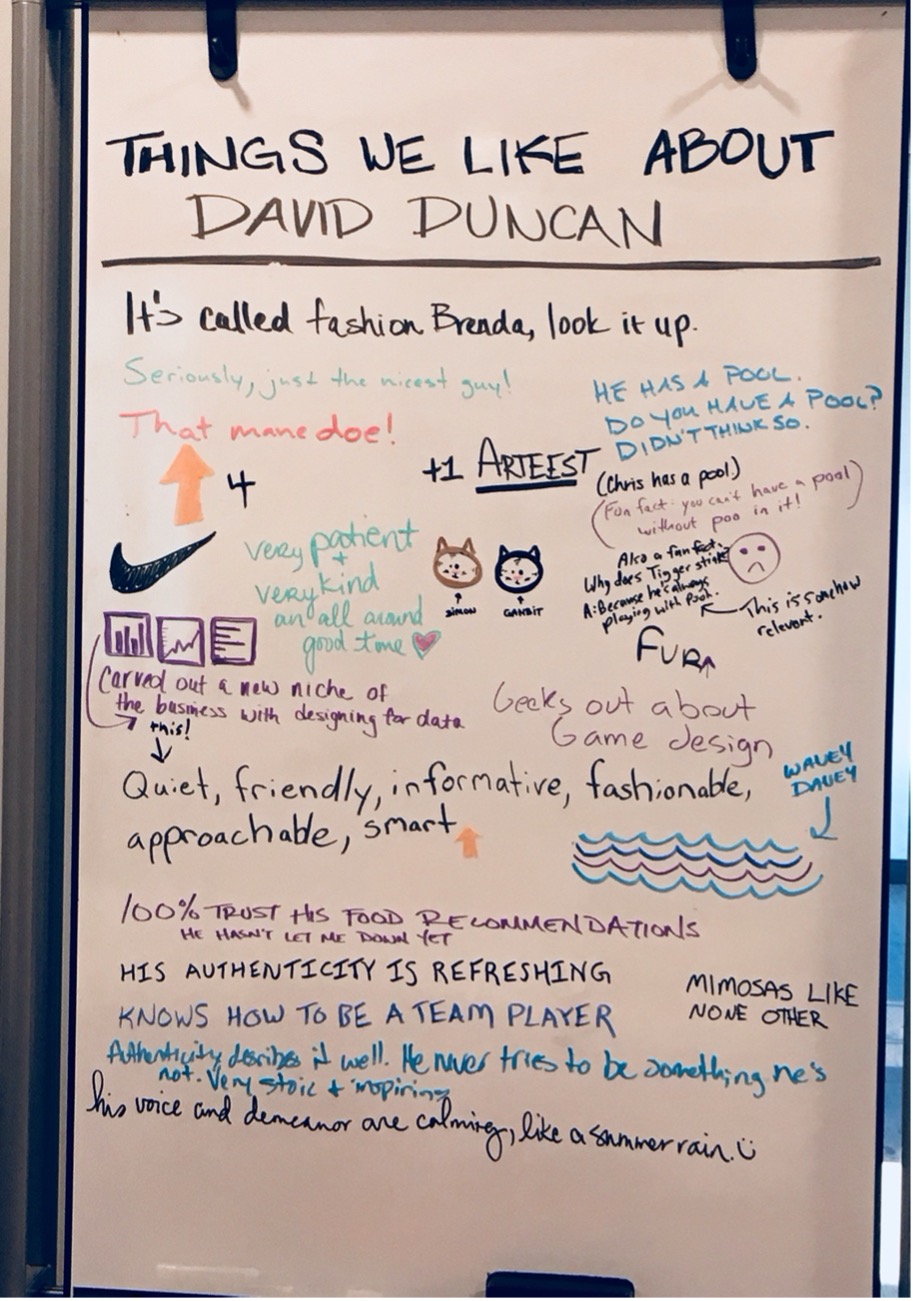 THINGS WE LIKE ABOUT
DAVID DUNCAN
It's called fashion Brenda, look it up.
Seriously, just the nicest guy!
HE HAS A POOL.
DO YOU HAVE A POOL?
DIDN'T THINK SO.
That mane doe!
4
+1 ARTEEST
(Chris has a pool.)
(Fun fact: you can't have a pool
without poo in it!)
very patient
+
very kind
an all around
good time
SIMON
GAMBIT
Also a fun fact:
Why does Tigger stink?
A: Because he's always
playing with Pooh.
This is somehow
relevant.
FURA
Carved out a new niche of
the business with designing for data
this!
Geeks out about
Game design
Quiet, friendly, informative, fashionable,
approachable, smart
WAVEY
DAVEY
100% TRUST HIS FOOD RECOMMENDATIONS
HE HASN'T LET ME DOWN YET
HIS AUTHENTICITY IS REFRESHING
MIMOSAS LIKE
NONE OTHER
KNOWS HOW TO BE A TEAM PLAYER
Authenticity describes it well. He never tries to be something he's
not. Very stoic + inspiring
his voice and demeanor are calming, like a summer rain.